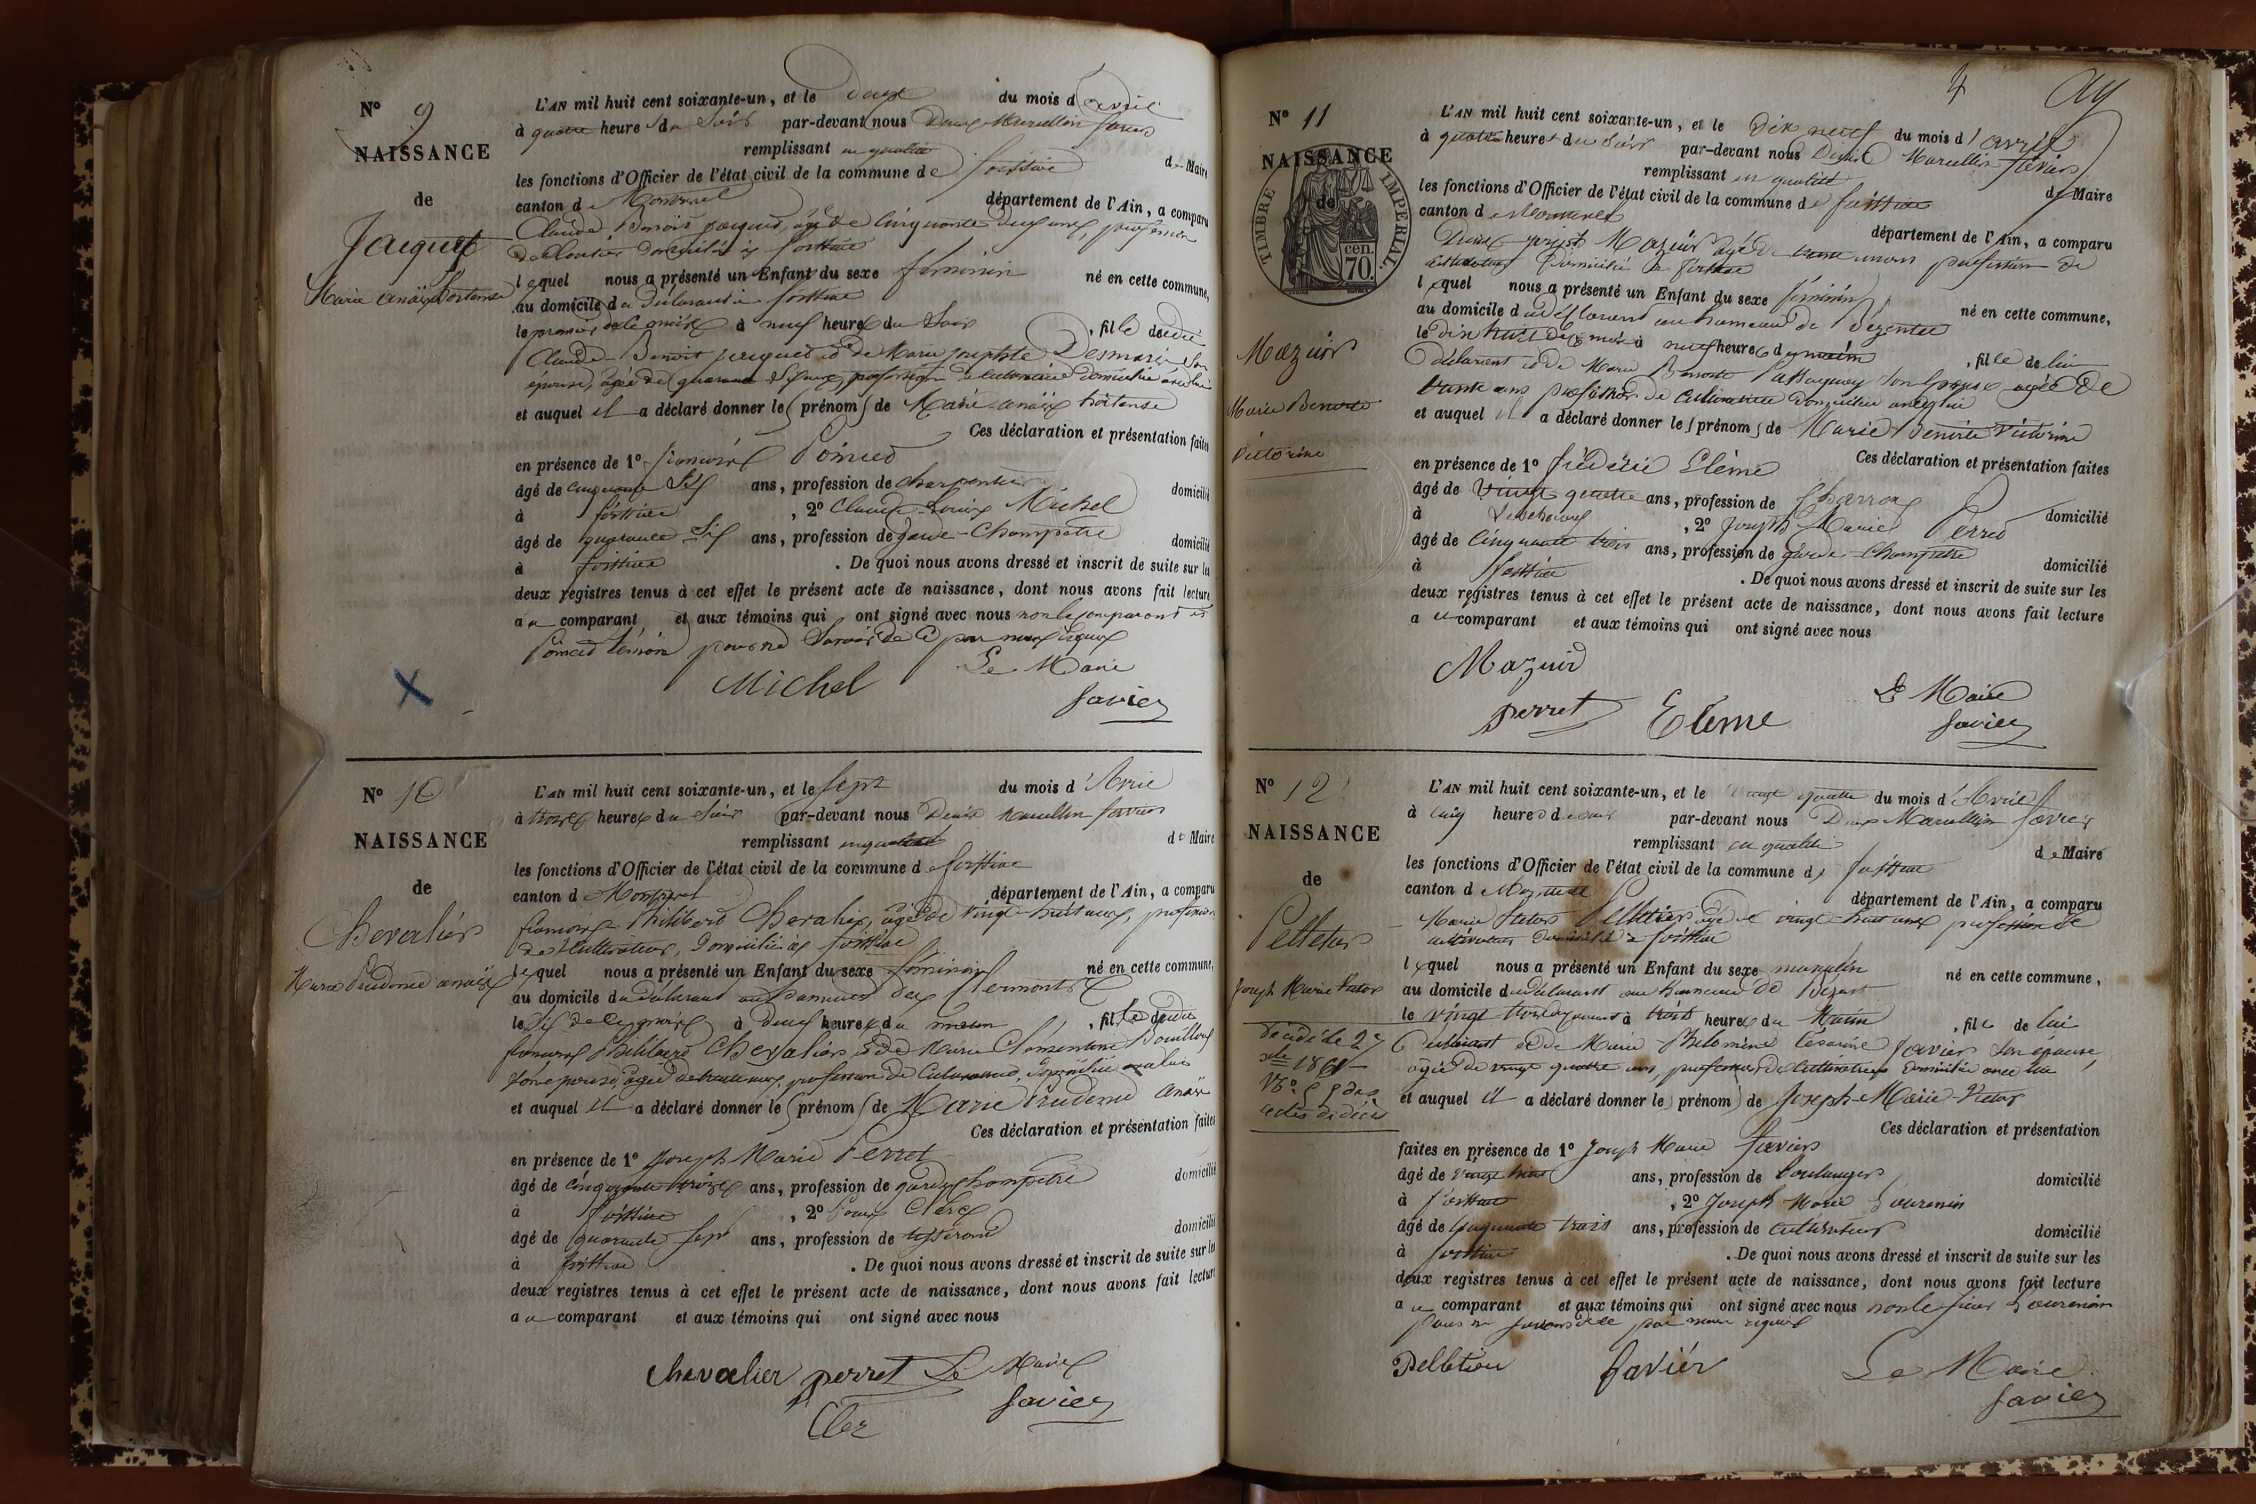 N° 9
NAISSANCE
de
Jacquet
Marie anaïs hortense
L'AN mil huit cent soixante-un, et le deux du mois d'avril
à quatre heures du Soir par-devant nous Denis Marcellin favier
remplissant en qualité de Maire
les fonctions d'Officier de l'état civil de la commune de
canton de département de l'Ain, a comparu
Claude Benoit Jacquet, âgé de Cinquante ans, profession
lequel nous a présenté un Enfant du sexe féminin né en cette commune,
au domicile du déclarant à
le premier de ce mois à neuf heures du Soir, fille de
Claude Benoit jacquet et de Marie josephte Son
épouse, âgée de quarante ans, profession de domiciliée avec lui
et auquel il a déclaré donner les prénoms de Marie anaïs hortense
Ces déclaration et présentation faites
en présence de 1° françois
âgé de cinquante ans, profession de charpentier domicilié
à , 2° Claude Michel
âgé de quarante Six ans, profession de garde-Champêtre domicilié
à . De quoi nous avons dressé et inscrit de suite sur les
deux registres tenus à cet effet le présent acte de naissance, dont nous avons fait lecture
au comparant et aux témoins qui ont signé avec nous non le comparant et
témoin pour ne Savoir de ce par nous requis
Le Maire
Michel
favier
N° 10
NAISSANCE
de
Chevalier
Marie Prudence anaïs
L'AN mil huit cent soixante-un, et le Sept du mois d'Avril
à trois heures du Soir par-devant nous Denis Marcellin favier
remplissant en qualité de Maire
les fonctions d'Officier de l'état civil de la commune de
canton de département de l'Ain, a comparu
françois Philibert Chevalier, âgé de vingt-huit ans, profession
de Cultivateur, Domicilié à
lequel nous a présenté un Enfant du sexe féminin né en cette commune,
au domicile du déclarant au hameau des
le Six de ce mois à deux heures du matin, fille de
françois Philibert Chevalier et de Marie Clémentine
Son épouse, âgée de ans, profession de Cultivatrice, Domiciliée avec lui
et auquel il a déclaré donner les prénoms de Marie Prudence Anaïs
Ces déclaration et présentation faites
en présence de 1° Joseph Marie Perret
âgé de cinquante trois ans, profession de garde champêtre domicilié
à , 2° Clerc
âgé de quarante Sept ans, profession de tisserand domicilié
à . De quoi nous avons dressé et inscrit de suite sur les
deux registres tenus à cet effet le présent acte de naissance, dont nous avons fait lecture
au comparant et aux témoins qui ont signé avec nous
chevalier perret Le Maire
Clerc favier
4
N° 11
NAISSANCE
de
TIMBRE IMPERIAL
70 cen.
Mazuir
Marie Benoite
Victorine
L'AN mil huit cent soixante-un, et le Dix neuf du mois d'avril
à quatre heures du Soir par-devant nous Denis Marcellin favier
remplissant en qualité de Maire
les fonctions d'Officier de l'état civil de la commune de
canton de département de l'Ain, a comparu
Mazuir âgé de ans profession de
cultivateur Domicilié à
lequel nous a présenté un Enfant du sexe féminin né en cette commune,
au domicile du déclarant au hameau de
le dix huit de ce mois à neuf heures du matin, fille de lui
déclarant et de Marie Benoite son épouse âgée de
trente ans profession de Cultivatrice domiciliée avec lui
et auquel il a déclaré donner les prénoms de Marie Benoite Victorine
Ces déclaration et présentation faites
en présence de 1° frédéric Elème
âgé de Vingt quatre ans, profession de Charron domicilié
à , 2° Joseph Marie Perret
âgé de Cinquante trois ans, profession de garde-champêtre domicilié
à . De quoi nous avons dressé et inscrit de suite sur les
deux registres tenus à cet effet le présent acte de naissance, dont nous avons fait lecture
au comparant et aux témoins qui ont signé avec nous
Mazuir
Le Maire
perret Elème favier
N° 12
NAISSANCE
de
Pelletier
Joseph Marie Victor
décédé le 27
1861
N° 55 des
actes de décès
L'AN mil huit cent soixante-un, et le vingt quatre du mois d'Avril
à cinq heures du soir par-devant nous Denis Marcellin favier
remplissant en qualité de Maire
les fonctions d'Officier de l'état civil de la commune de
canton de département de l'Ain, a comparu
Marie Victor Pelletier âgé de vingt-huit ans profession de
cultivateur domicilié à
lequel nous a présenté un Enfant du sexe masculin né en cette commune,
au domicile du déclarant au hameau de
le vingt trois du courant à trois heures du Matin, fils de lui
déclarant et de Marie Philomène Césarine favier Son épouse,
âgée de vingt quatre ans, profession de Cultivatrice Domiciliée avec lui
et auquel il a déclaré donner les prénoms de Joseph-Marie-Victor
Ces déclaration et présentation
faites en présence de 1° Joseph Marie favier
âgé de vingt ans, profession de boulanger domicilié
à , 2° Joseph Marie
âgé de cinquante trois ans, profession de cultivateur domicilié
à . De quoi nous avons dressé et inscrit de suite sur les
deux registres tenus à cet effet le présent acte de naissance, dont nous avons fait lecture
au comparant et aux témoins qui ont signé avec nous non le sieur
pour ne par nous requis
Pelletier favier Le Maire
favier